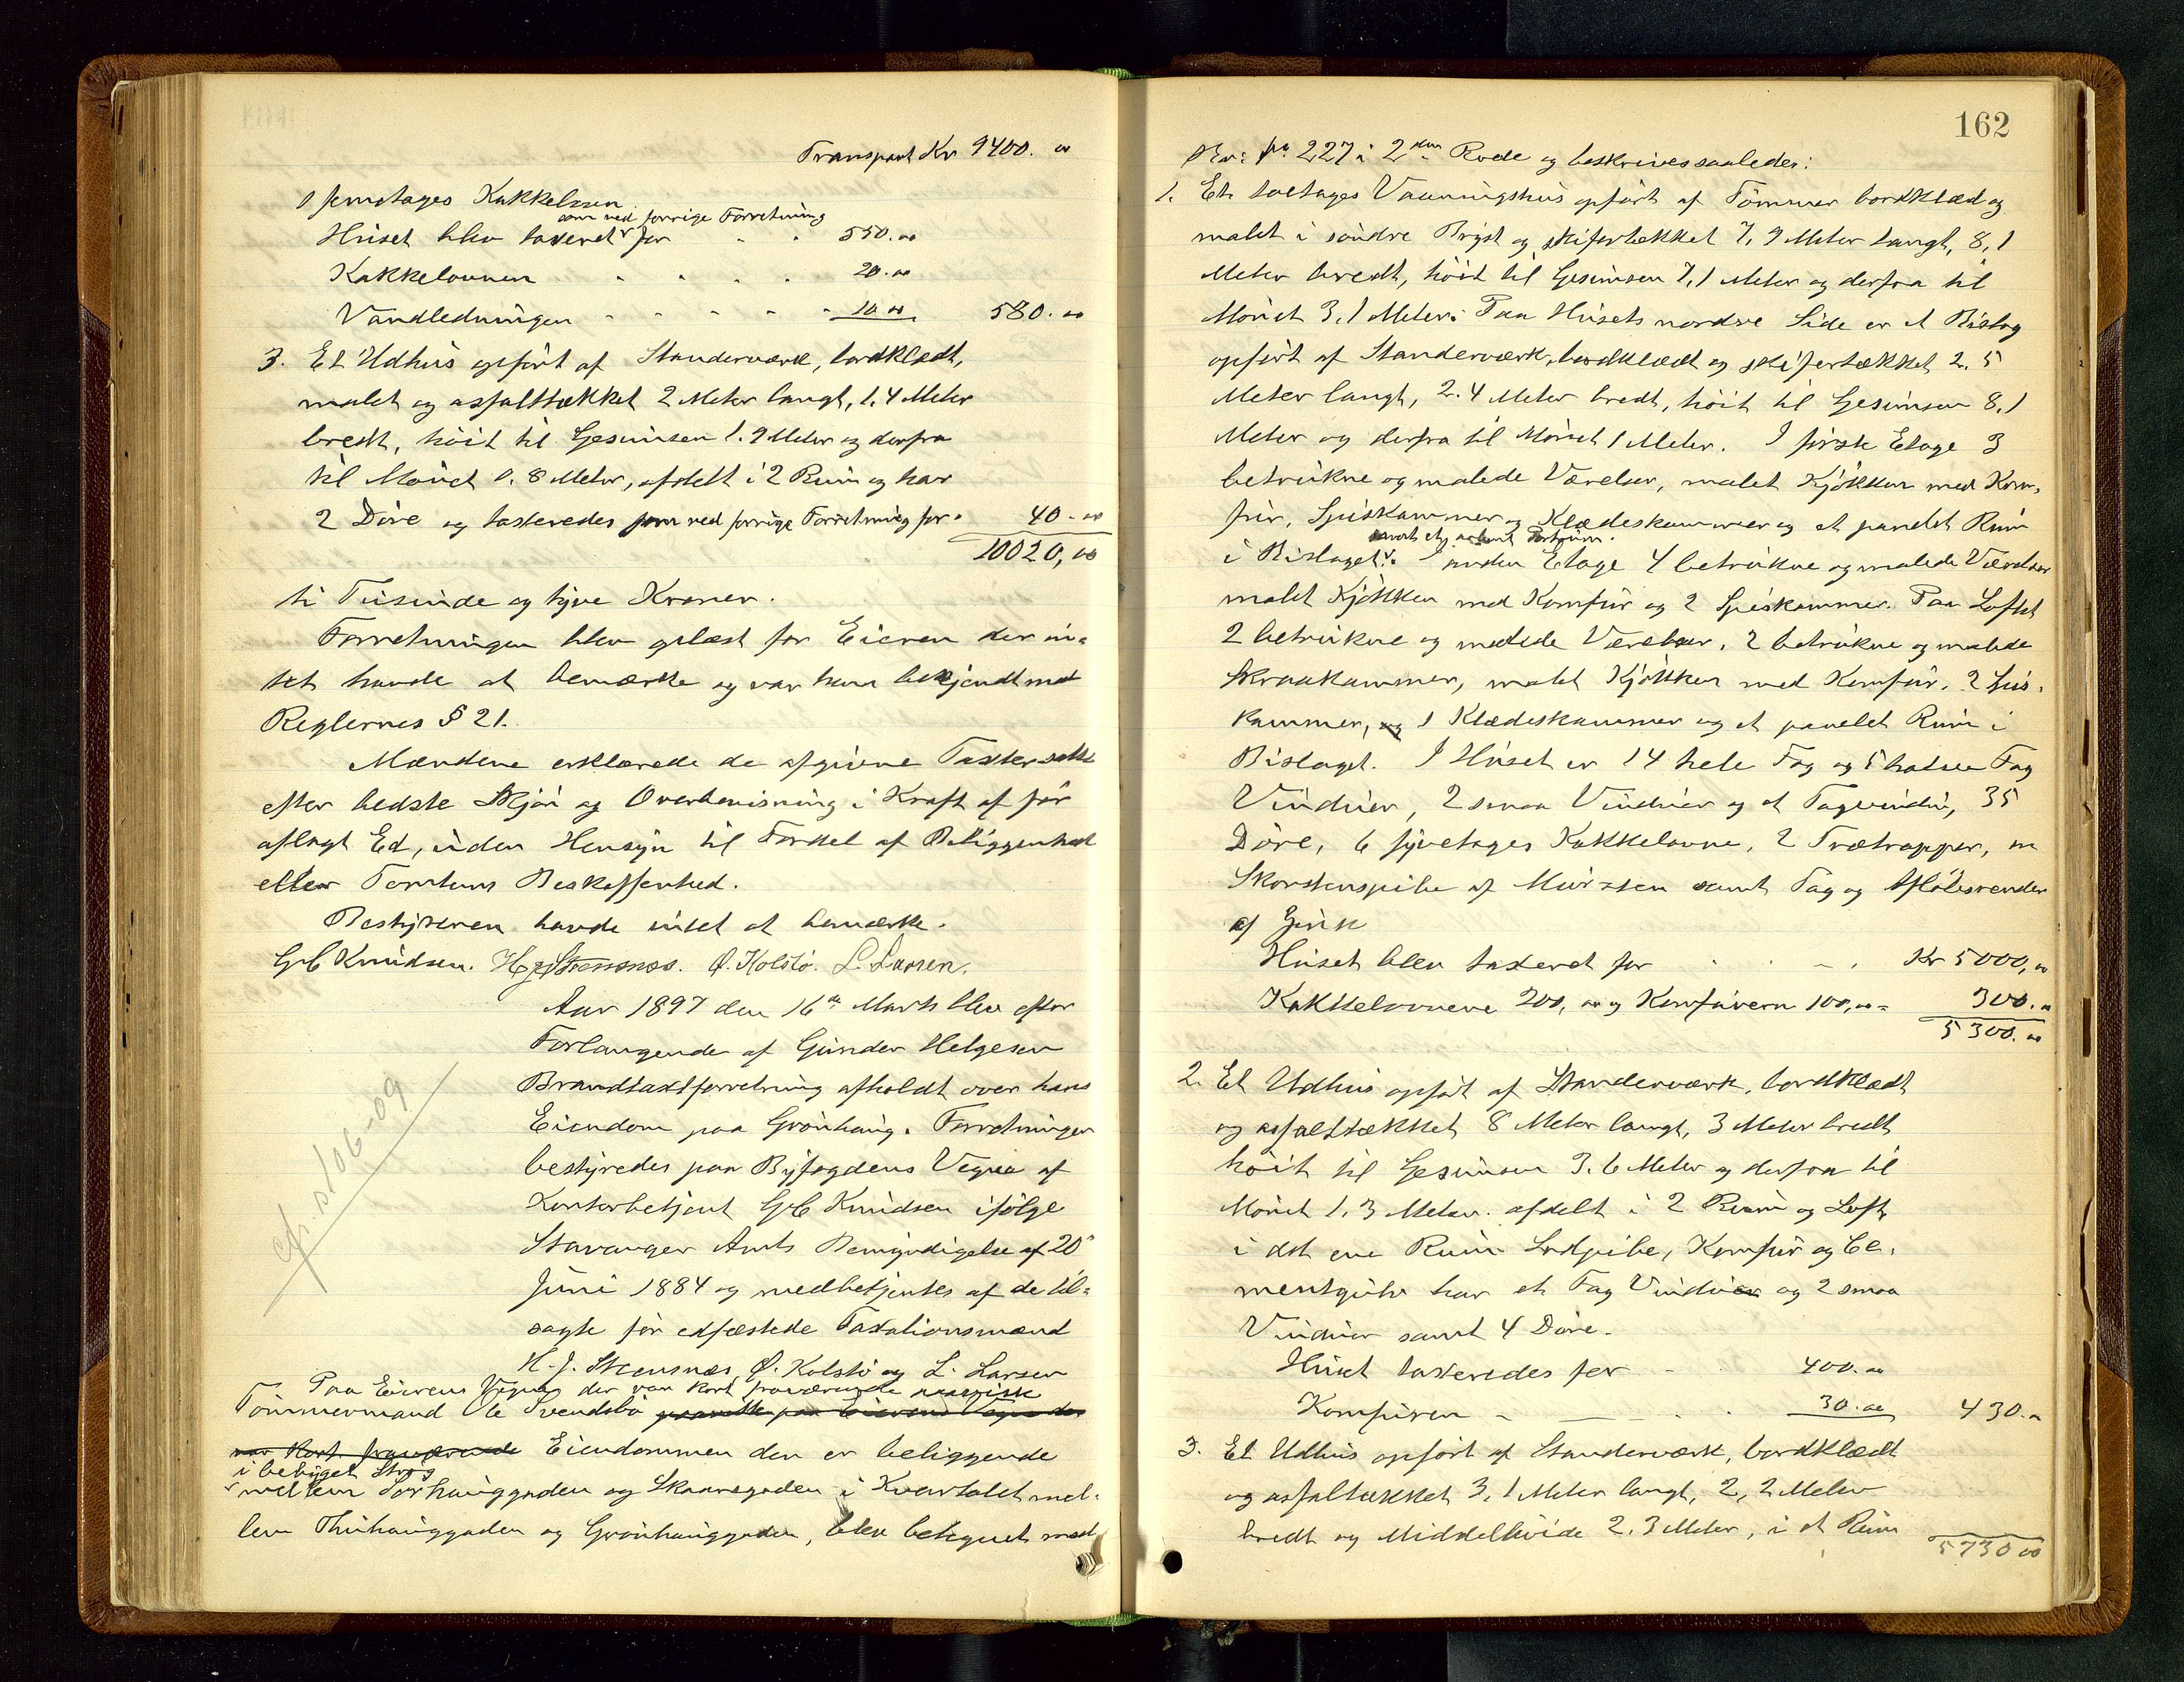 Transport Kr 9400. 00
1 femetages Kakkelovn.
som ved forrige Forretning
Huset blev taxeret for 550. 00
Kakkelovnen 20. 00
Vandledningen 10 00 580. 00
3. Et Udhus opført af Standerværk, bordklædt,
malet og asfalttækket 2 Meter langt, 1.4 Meter
bredt, höit til Gesimsen 1.9 Meter og derfra
til Mönet 0.8 Meter, afdelt i 2 Rum og har
2 Döre og taxeredes som ved forrige Forretning for 40 - 00
10020, 00
ti Tusinde og tyve Kroner.
Forretningen blev oplæst for Eieren der in-
tet havde at bemærke og var han bekjendt med
Reglernes § 21.
Mændene erklærede de afgivne Taxter satte
efter bedste Skjön og Overbevisning i Kraft af för
aflagt Ed, uden Hensyn til Fordel af Beliggenhed
eller Tomtens Beskaffenhed.
Bestyreren havde intet at bemærke.
G C Knudsen. H J Steensnæs. O. Kolstö. L. Larsen.
Aar 1897 den 16de Marts blev efter
Forlangende af Gunder Helgesen
Brandtaxtforretning afholdt over hans
Eiendom paa Grönhaug. Forretningen
bestyredes paa Byfogdens Vegne af
Kontorbetjent G C Knudsen ifölge
Stavanger Amts Bemyndigelse af 20de
Juni 1884 og medbetjentes af de til-
sagte för edfæstede Taxationsmænd
H. J. Steensnæs, O. Kolstö og L. Larsen
cfr. s 106-09
Paa Eierens Vegne der var kort fraværende
Tömmermand Ole Svendsbö paa Eierens Vegne der
var kort fraværende Eiendommen den er beliggende
i bebygget Strög
mellem Sörhauggaden og Skaaregaden i Kvartalet mel-
lem Thuhauggaden og Grönhauggaden, blev betegnet med
162
No 227 i 2den Rode og beskrives saaledes:
1. Et toetages Vaaningshus opfört af Tömmer bordklæd og
malet i söndre Bryst og skifertækket 7,9 Meter langt, 8,1
Meter bredt, höit til Gesimsen 7,1 Meter og derfra til
Mönet 3,1 Meter. Paa Husets nordre Side er et Bislag
opfört af Standerværk, bordklædt og skifertækket 2.5
Meter langt, 2.4 Meter bredt, höit til Gesimsen 8,1
Meter og derfra til Mönet 1 Meter. I förste Etage 3
betrukne og malede Værelser, malet Kjökken med Kom-
für, Spiskammer og Klædeskammer og et panelet Rum
i Bislaget. I anden Etage 4 betrukne og malede Værelser
malet Kjökken med Komfür og 2 Spiskammer. Paa Loftet
2 betrukne og malede Værelser, 2 betrukne og malede
Skraakammer, malet Kjökken med Komfür, 2 Spis-
kammer, og 1 Klædeskammer og et panelet Rum i
Bislaget. I Huset er 14 hele Fag og 5 halve Fag
Vinduer, 2 smaa Vinduer og et Tagvindu, 35
Döre, 6 fyretages Kakkelovne, 2 Trætrapper, en
Skorstenspibe af Mursten samt Tag og Aflöbsrender
af Zink
Huset blev taxeret for Kr 5000, 00
Kakkelovnene 200, 00 og Komfüren 100, 00 300. 00
5300. 00
2. Et Udhus opfört af Standerværk, bordklædt
og asfalttækket 8 Meter langt, 3 Meter bredt
höit til Gesimsen 3.6 Meter og derfra til
Mönet 1.3 Meter. afdelt i 2 Rum og Loft,
i det ene Rum Lodpibe, Komfür og Ce-
mentgulv har et Fag Vinduer og 2 smaa
Vinduer samt 4 Döre.
Huset taxeredes for 400. 00
Komfüren 30. 00 430. 00
3. Et Udhus opfört af Standerværk, bordklædt
og asfaltækket 3,1 Meter langt, 2,2 Meter
bredt og Middelhöide 2.3 Meter, i et Rum
5730 00